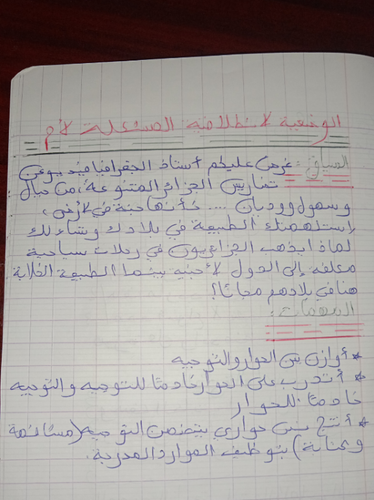 الوضعية الانطلاقية المشكلة الأم
السياق: عرض عليكم أستاذ الجغرافيا فيديو عن
تضاريس الجزائر المتنوعة، من جبال
وسهول ووديان .... كأنها جنة في الأرض،
استلهمتك الطبيعة في بلادك وتساءلت
لماذا يذهب الجزائريون في رحلات سياحية
مكلفة إلى الدول الأجنبية بينما الطبيعة الخلابة
هنا في بلادهم مجانا؟
المهمات:
* أوازن بين الحوار والتوجيه
* أتدرب على الحوار خادما للتوجيه والتوجيه
خادما للحوار
* أنتج نص حواري يتضمن التوجيه (مشافهة
وكتابة) بتوظيف الموارد المدروسة.